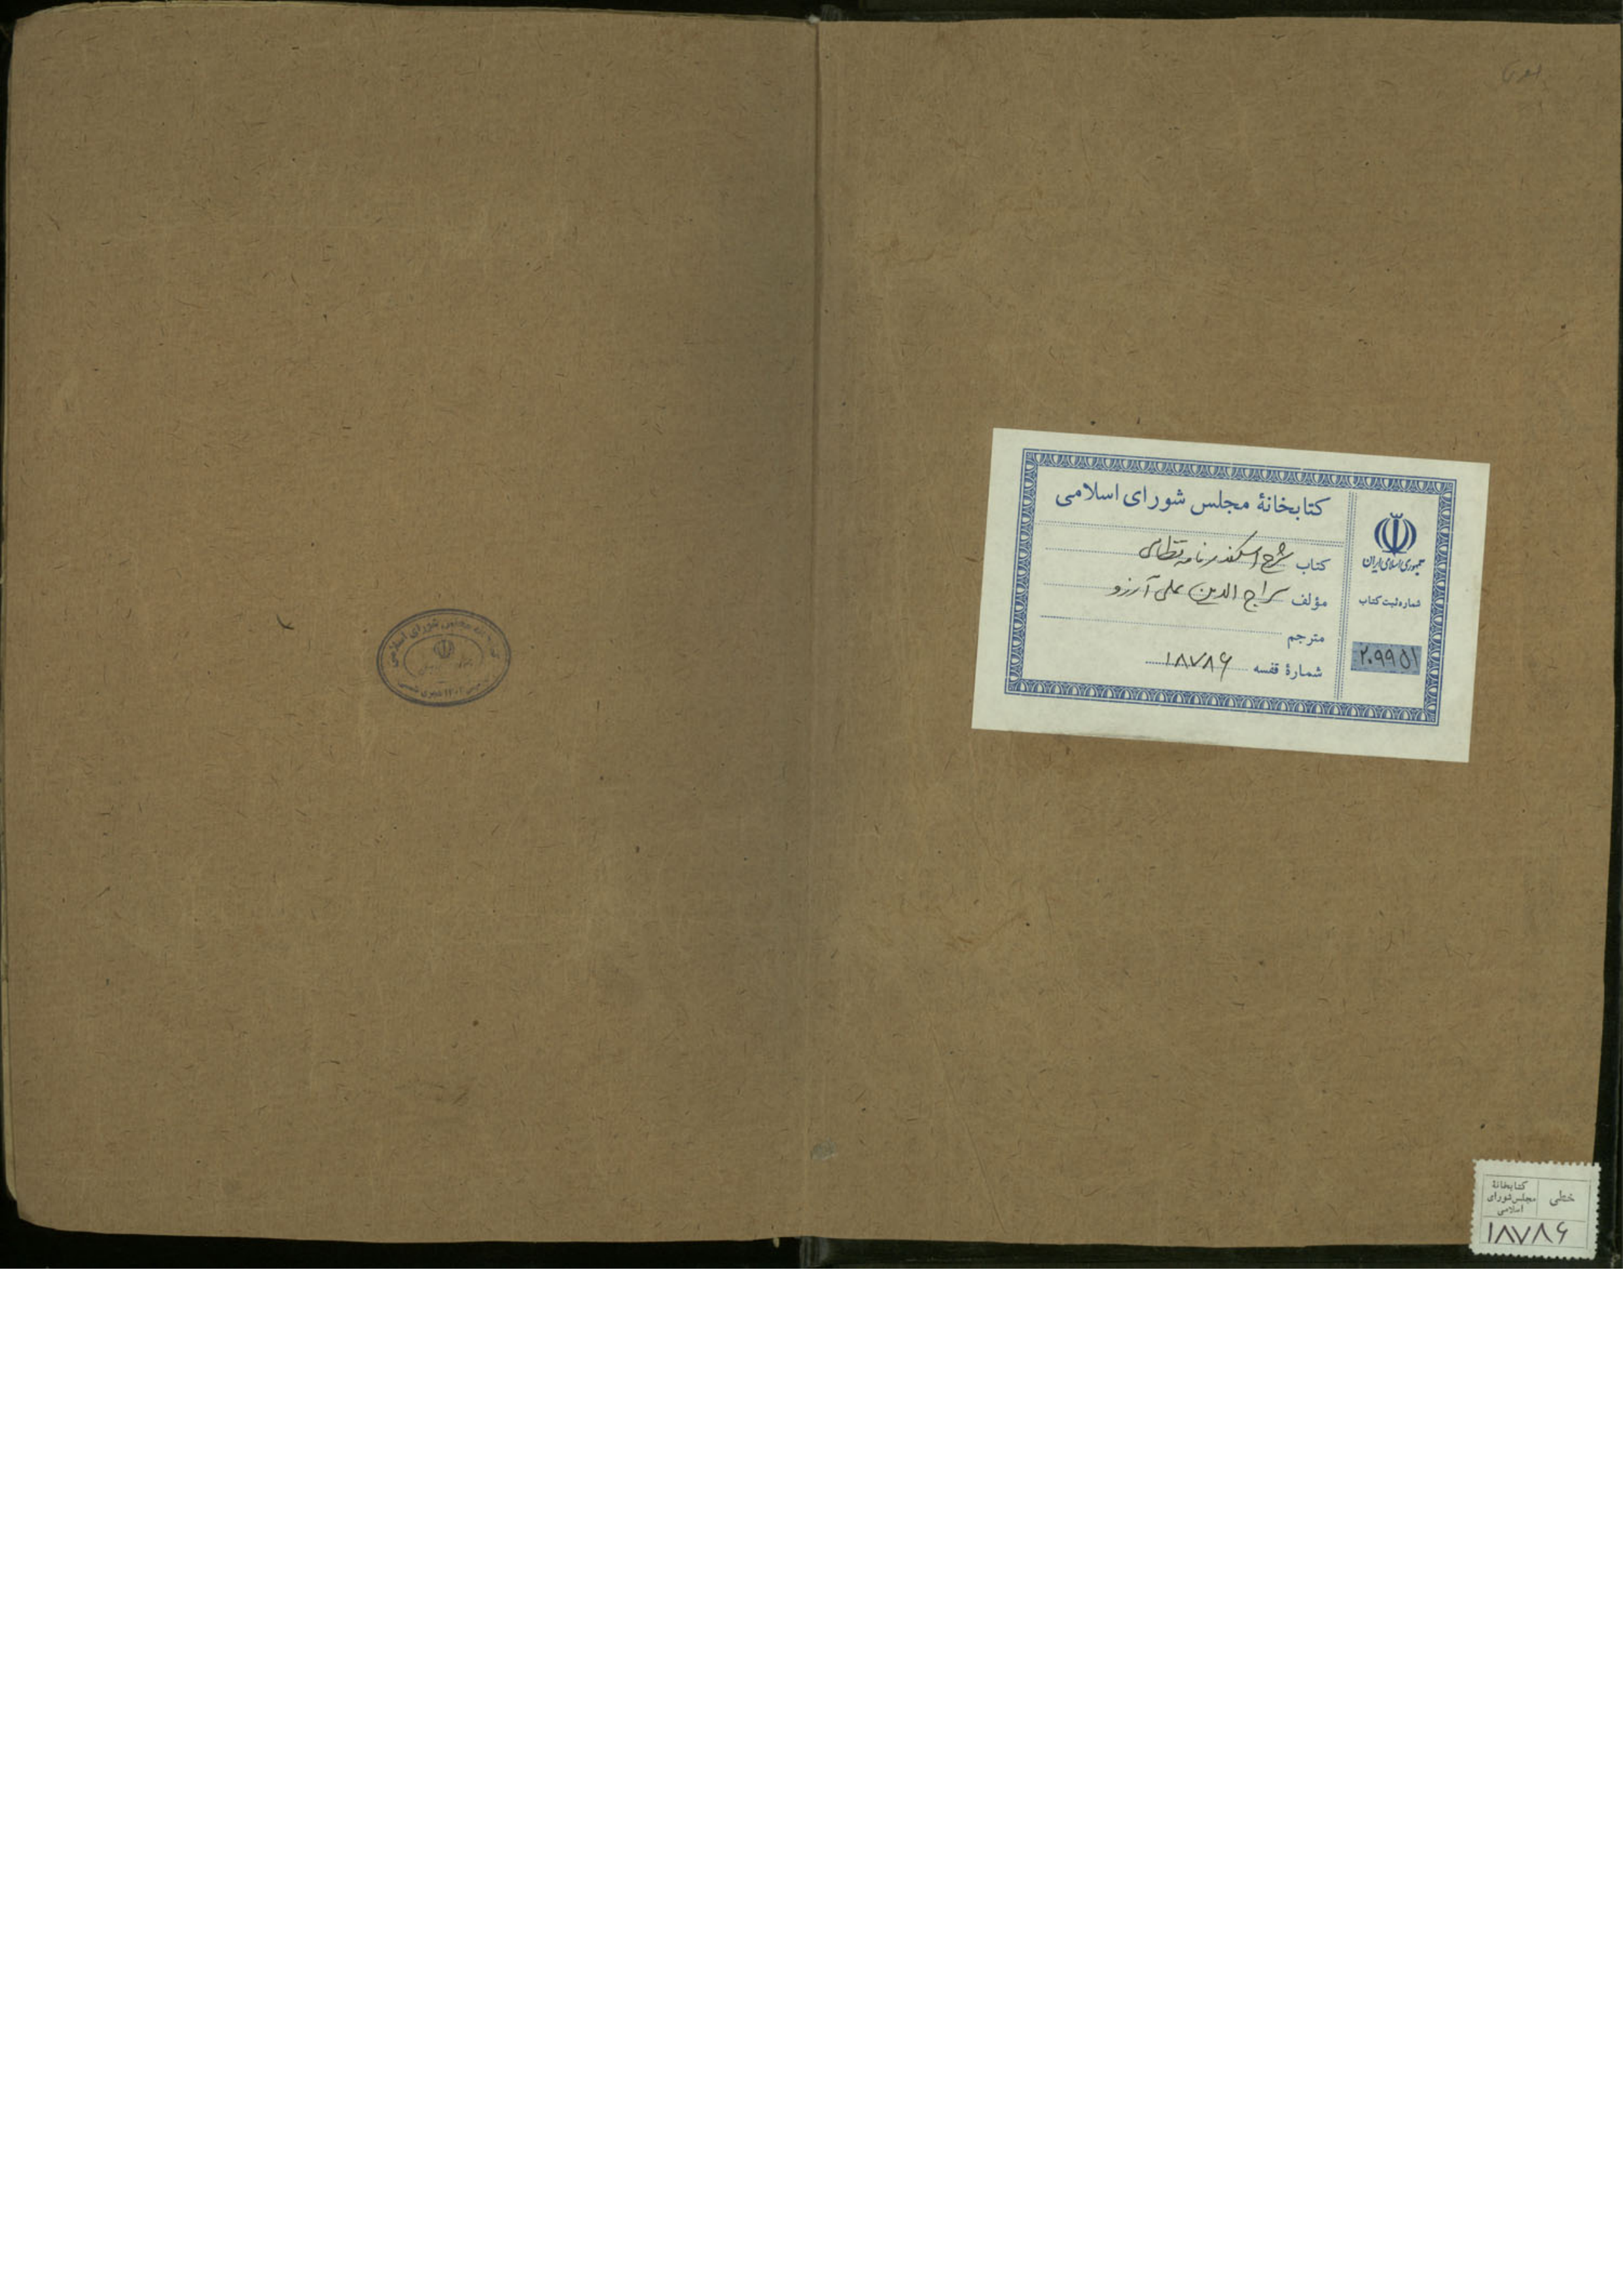 کتابخانهٔ مجلس شورای اسلامی
کتاب شرح اسکندرنامه نظامی
مؤلف سراج الدین علی آرزو
مترجم
شمارهٔ قفسه ۱۸۷۸۶
جمهوری اسلامی ایران
شماره ثبت کتاب
۲۰۹۹۵۱
مجلس شورای اسلامی
خطی
کتابخانهٔ
مجلس شورای
اسلامی
۱۸۷۸۶